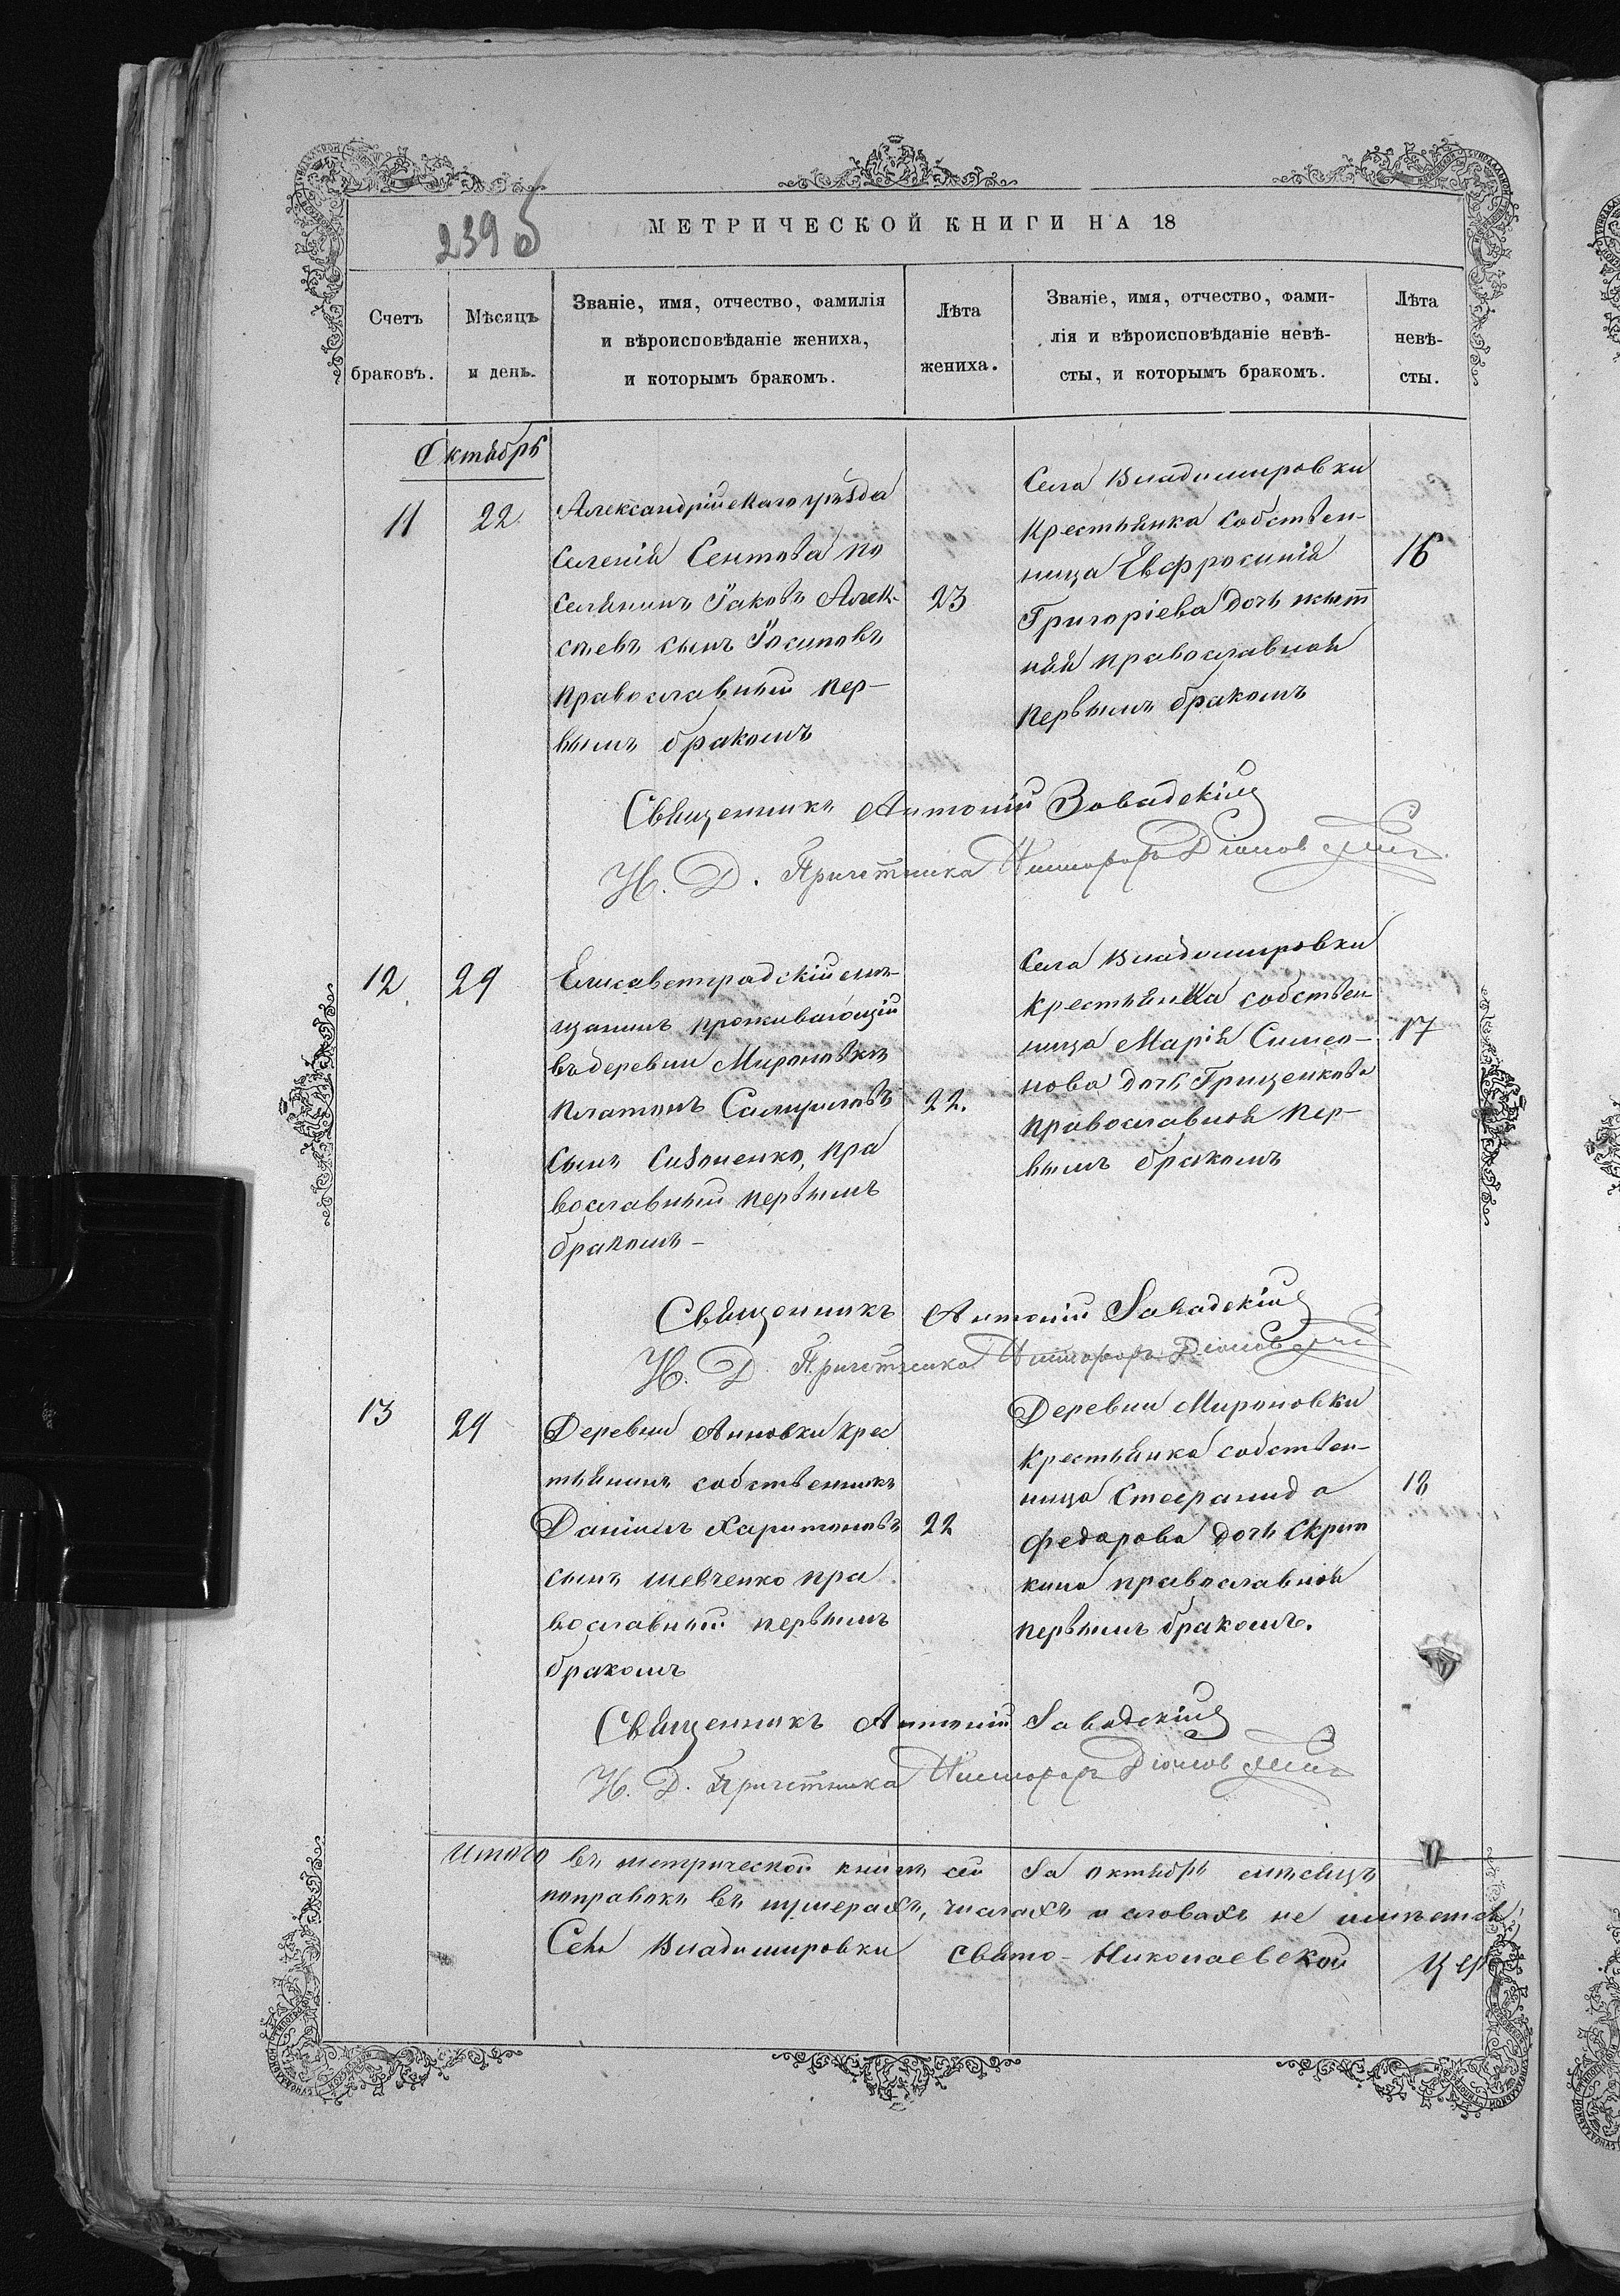 239 б
МЕТРИЧЕСКОЙ КНИГИ НА 18
Счетъ браковъ.
Мѣсяцъ и день.
Званіе, имя, отчество, фамилія
и вѣроисповѣданіе жениха,
и которымъ бракомъ.
Лѣта жениха.
Званіе, имя, отчество, фами-
лія и вѣроисповѣданіе невѣ-
сты, и которымъ бракомъ.
Лѣта невѣ-
сты.
Октябрь
11
22
Александрійскаго уѣзда
селенія Сентова по
селянинъ Іаковъ Алек-
сѣевъ сынъ Іосиповъ
православный пер-
вымъ бракомъ
23
Села Владимировки
крестьянка собствен-
ница Евфросинія
Григоріева дочь
православная
первымъ бракомъ
16
Священникъ Антоній Завадскій
И. Д. Причетника Никифоръ
12
29
Елисаветградскій мѣ-
щанинъ проживающій
въ деревни Мироновкѣ
Платонъ
сынъ православный первымъ
бракомъ-
22.
Села Владимировки
крестьянка собствен
ница Марія Симео-
нова дочь Грищенкова
православная пер-
вымъ бракомъ
17
Священникъ Антоній Завадскій
И. Д. Причетника Никифоръ
13
29
Деревни Анновки крес
тьянинъ собственникъ
Даніилъ Харитоновъ
сынъ Шевченко пра
вославный первымъ
бракомъ
22
Деревни Мироновки
крестьянка собствен-
ница Стефанида
Федорова дочь Скрип
кина православная
первымъ бракомъ.
18
Священникъ Антоній Завадскій
И. Д. Причетника Никифоръ
Итого въ метрической книгѣ сей за октябрь мѣсяцъ
поправокъ въ нумерахъ, числахъ и словахъ не имѣется,
Села Владимировки Свято-Николаевской Цер